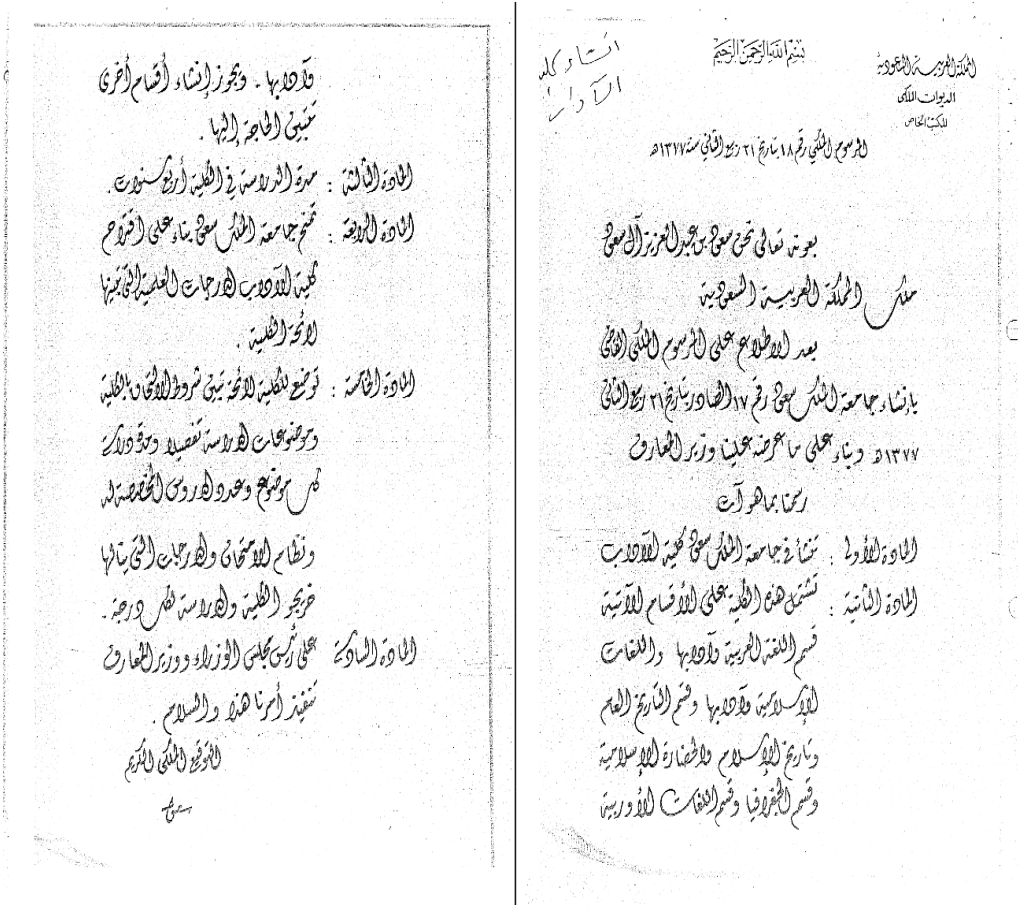 بسم الله الرحمن الرحيم
انشاء كلية
الآداب
المملكة العربية السعودية
الديوان الملكي
المكتب الخاص
المرسوم الملكي رقم ١٨ بتاريخ ٢١ ربيع الثاني سنة ١٣٧٧هـ
بعونه تعالى نحن سعود بن عبد العزيز آل سعود
ملك المملكة العربية السعودية
بعد الاطلاع على المرسوم الملكي القاضي
بإنشاء جامعة الملك سعود رقم ١٧ الصادر بتاريخ ٢١ ربيع الثاني
١٣٧٧هـ وبناء على ما عرضه علينا وزير المعارف
رسمنا بما هو آت
المادة الأولى : تنشأ في جامعة الملك سعود كلية الآداب
المادة الثانية : تشتمل هذه الكلية على الأقسام الآتية
قسم اللغة العربية وآدابها واللغات
الإسلامية وآدابها وقسم التاريخ العام
وتاريخ الإسلام والحضارة الإسلامية
وقسم الجغرافيا وقسم اللغات الأوربية
وآدابها . ويجوز إنشاء أقسام أخرى
تتبين الحاجة إليها .
المادة الثالثة : مدة الدراسة في الكلية أربع سنوات .
المادة الرابعة : تمنح جامعة الملك سعود بناء على اقتراح
كلية الآداب الدرجات العلمية التي تبينها
لائحة الكلية .
المادة الخامسة : توضع للكلية لائحة تبين شروط الالتحاق بالكلية
وموضوعات الدراسة تفصيلا ومدة دراسة
كل موضوع وعدد الدروس المخصصة له
ونظام الامتحان والدرجات التي ينالها
خريجو الكلية والدراسة لكل درجة .
المادة السادسة على رئيس مجلس الوزراء ووزير المعارف
تنفيذ أمرنا هذا والسلام .
التوقيع الملكي الكريم
سعود